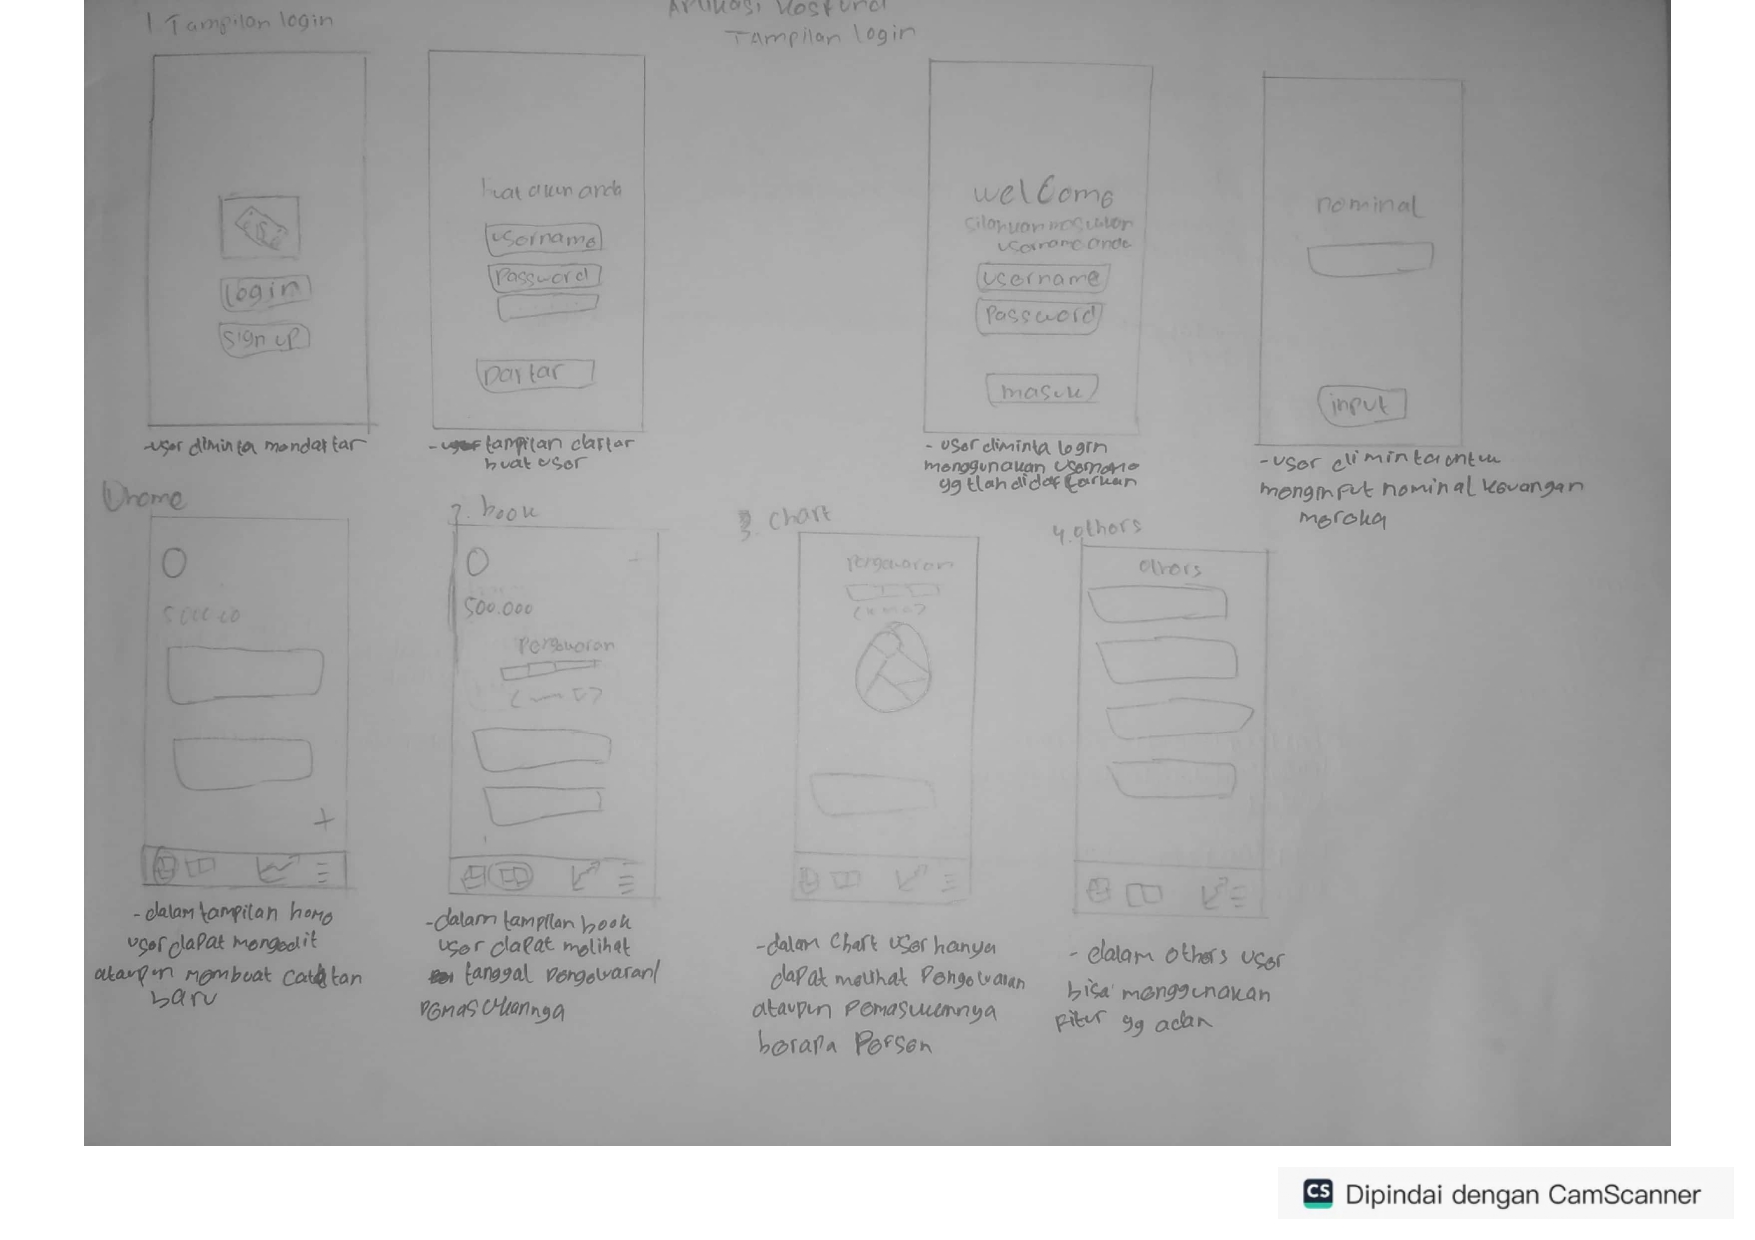 Aplikasi Kosfund
Tampilan login
1 Tampilan login
login
sign up
-user diminta mendaftar
buat akun anda
username
Password
Daftar
- tampilan daftar
buat user
welcome
silahkan masukan
username anda
username
Password
masuk
- user diminta login
menggunakan username
yg tlah di daftarkan
nominal
input
-user diminta untuk
menginput nominal keuangan
mereka
1 home
-dalam tampilan home
user dapat mengedit
ataupun membuat catatan
baru
2. book
500.000
Pengeluaran
-dalam tampilan book
user dapat melihat
tanggal pengeluaran/
pemasukannya
3. chart
Pengeluaran
-dalam Chart user hanya
dapat melihat Pengeluaran
ataupun Pemasukannya
berapa Persen
4. others
others
- dalam others user
bisa menggunakan
fitur yg adah
CS Dipindai dengan CamScanner